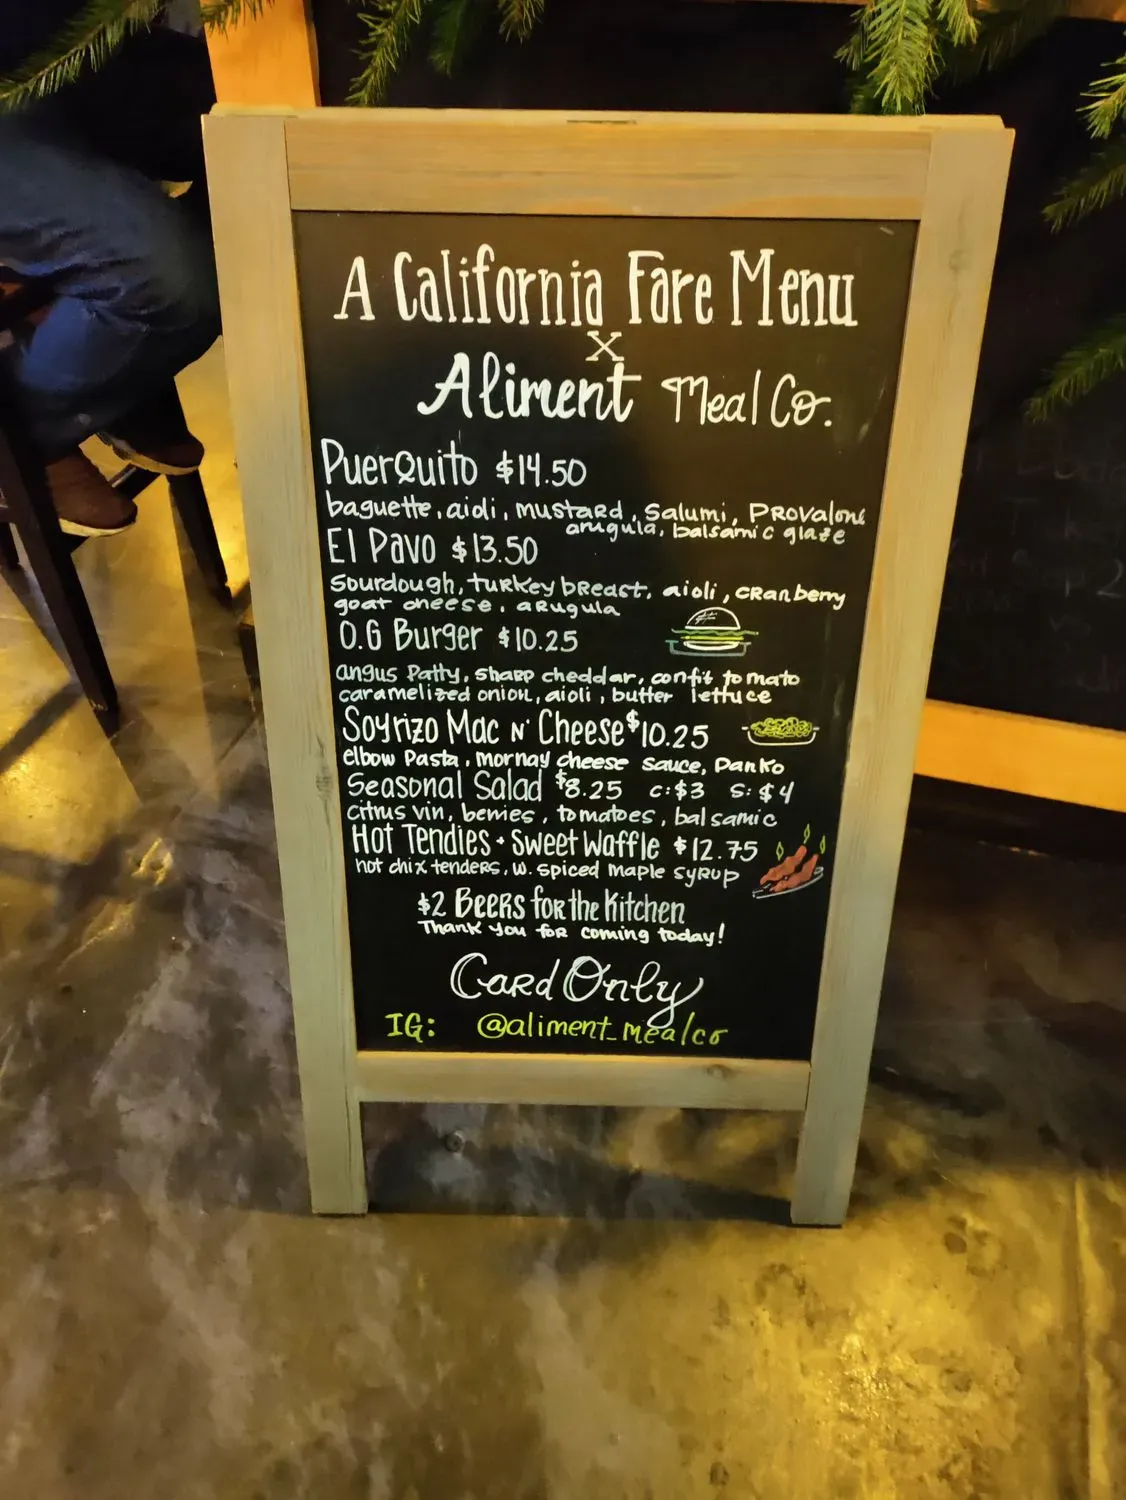 A California Fare Menu
X
Aliment Meal Co.
PuerQuito $14.50
baguette, aioli, mustard, Salumi, Provalone
arugula, balsamic glaze
El Pavo $13.50
sourdough, turkey breast, aioli, cranberry
goat cheese, arugula
O.G Burger $10.25
angus Patty, sharp cheddar, confit tomato
caramelized onion, aioli, butter lettuce
Soyrizo Mac N' Cheese $10.25
elbow Pasta, mornay cheese sauce, Panko
Seasonal Salad $8.25 c:$3 s:$4
citrus vin, berries, tomatoes, balsamic
Hot Tendies + Sweet Waffle $12.75
hot chix tenders, w. spiced maple syrup
$2 Beers for the Kitchen
Thank you for coming today!
Card Only
IG: @aliment_mealco